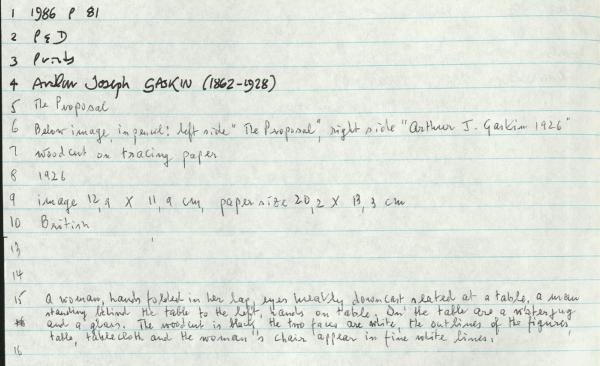 1 1986 P 81
2 P&D
3 Prints
4 Arthur Joseph GASKIN (1862-1928)
5 The Proposal
6 Below image, in pencil: left side "The Proposal", right side "Arthur J. Gaskin 1926"
7 woodcut on tracing paper
8 1926
9 image 12,9 X 11,9 cm, paper size 20,2 X 13,3 cm
10 British
13
14
15 A woman, hands folded in her lap, eyes meekly downcast seated at a table, a man
standing behind the table to the left, hands on table. On the table are a waterjug
and a glass. The woodcut is black, the two faces are white, the outlines of the figures,
table, tablecloth and the woman's chair appear in fine white lines.
16